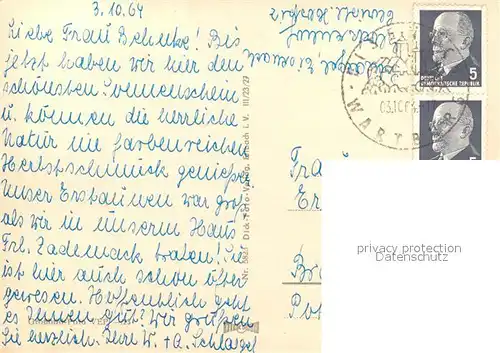 3.10.64
Liebe Frau Behnke! Bis
jetzt haben wir hier den
schönsten Sonnenschein
u. können die herrliche
Natur im farbenreichen
Herbstschmuck genießen.
Unser Erstaunen war groß,
als wir in unserem Haus
Frl. Zademack trafen! Sie
ist hier auch schon öfter
gewesen. Hoffentlich geht
es Ihnen gut? Wir grüßen
Sie herzlich. Ihre W. + A. Schlagel
III/23/27
Dick-Foto-Verlag, Erlbach i. V.
Nr.
Frau
WARTBURG
5
DEUTSCHE
DEMOKRATISCHE REPUBLIK
5
privacy protection
Datenschutz